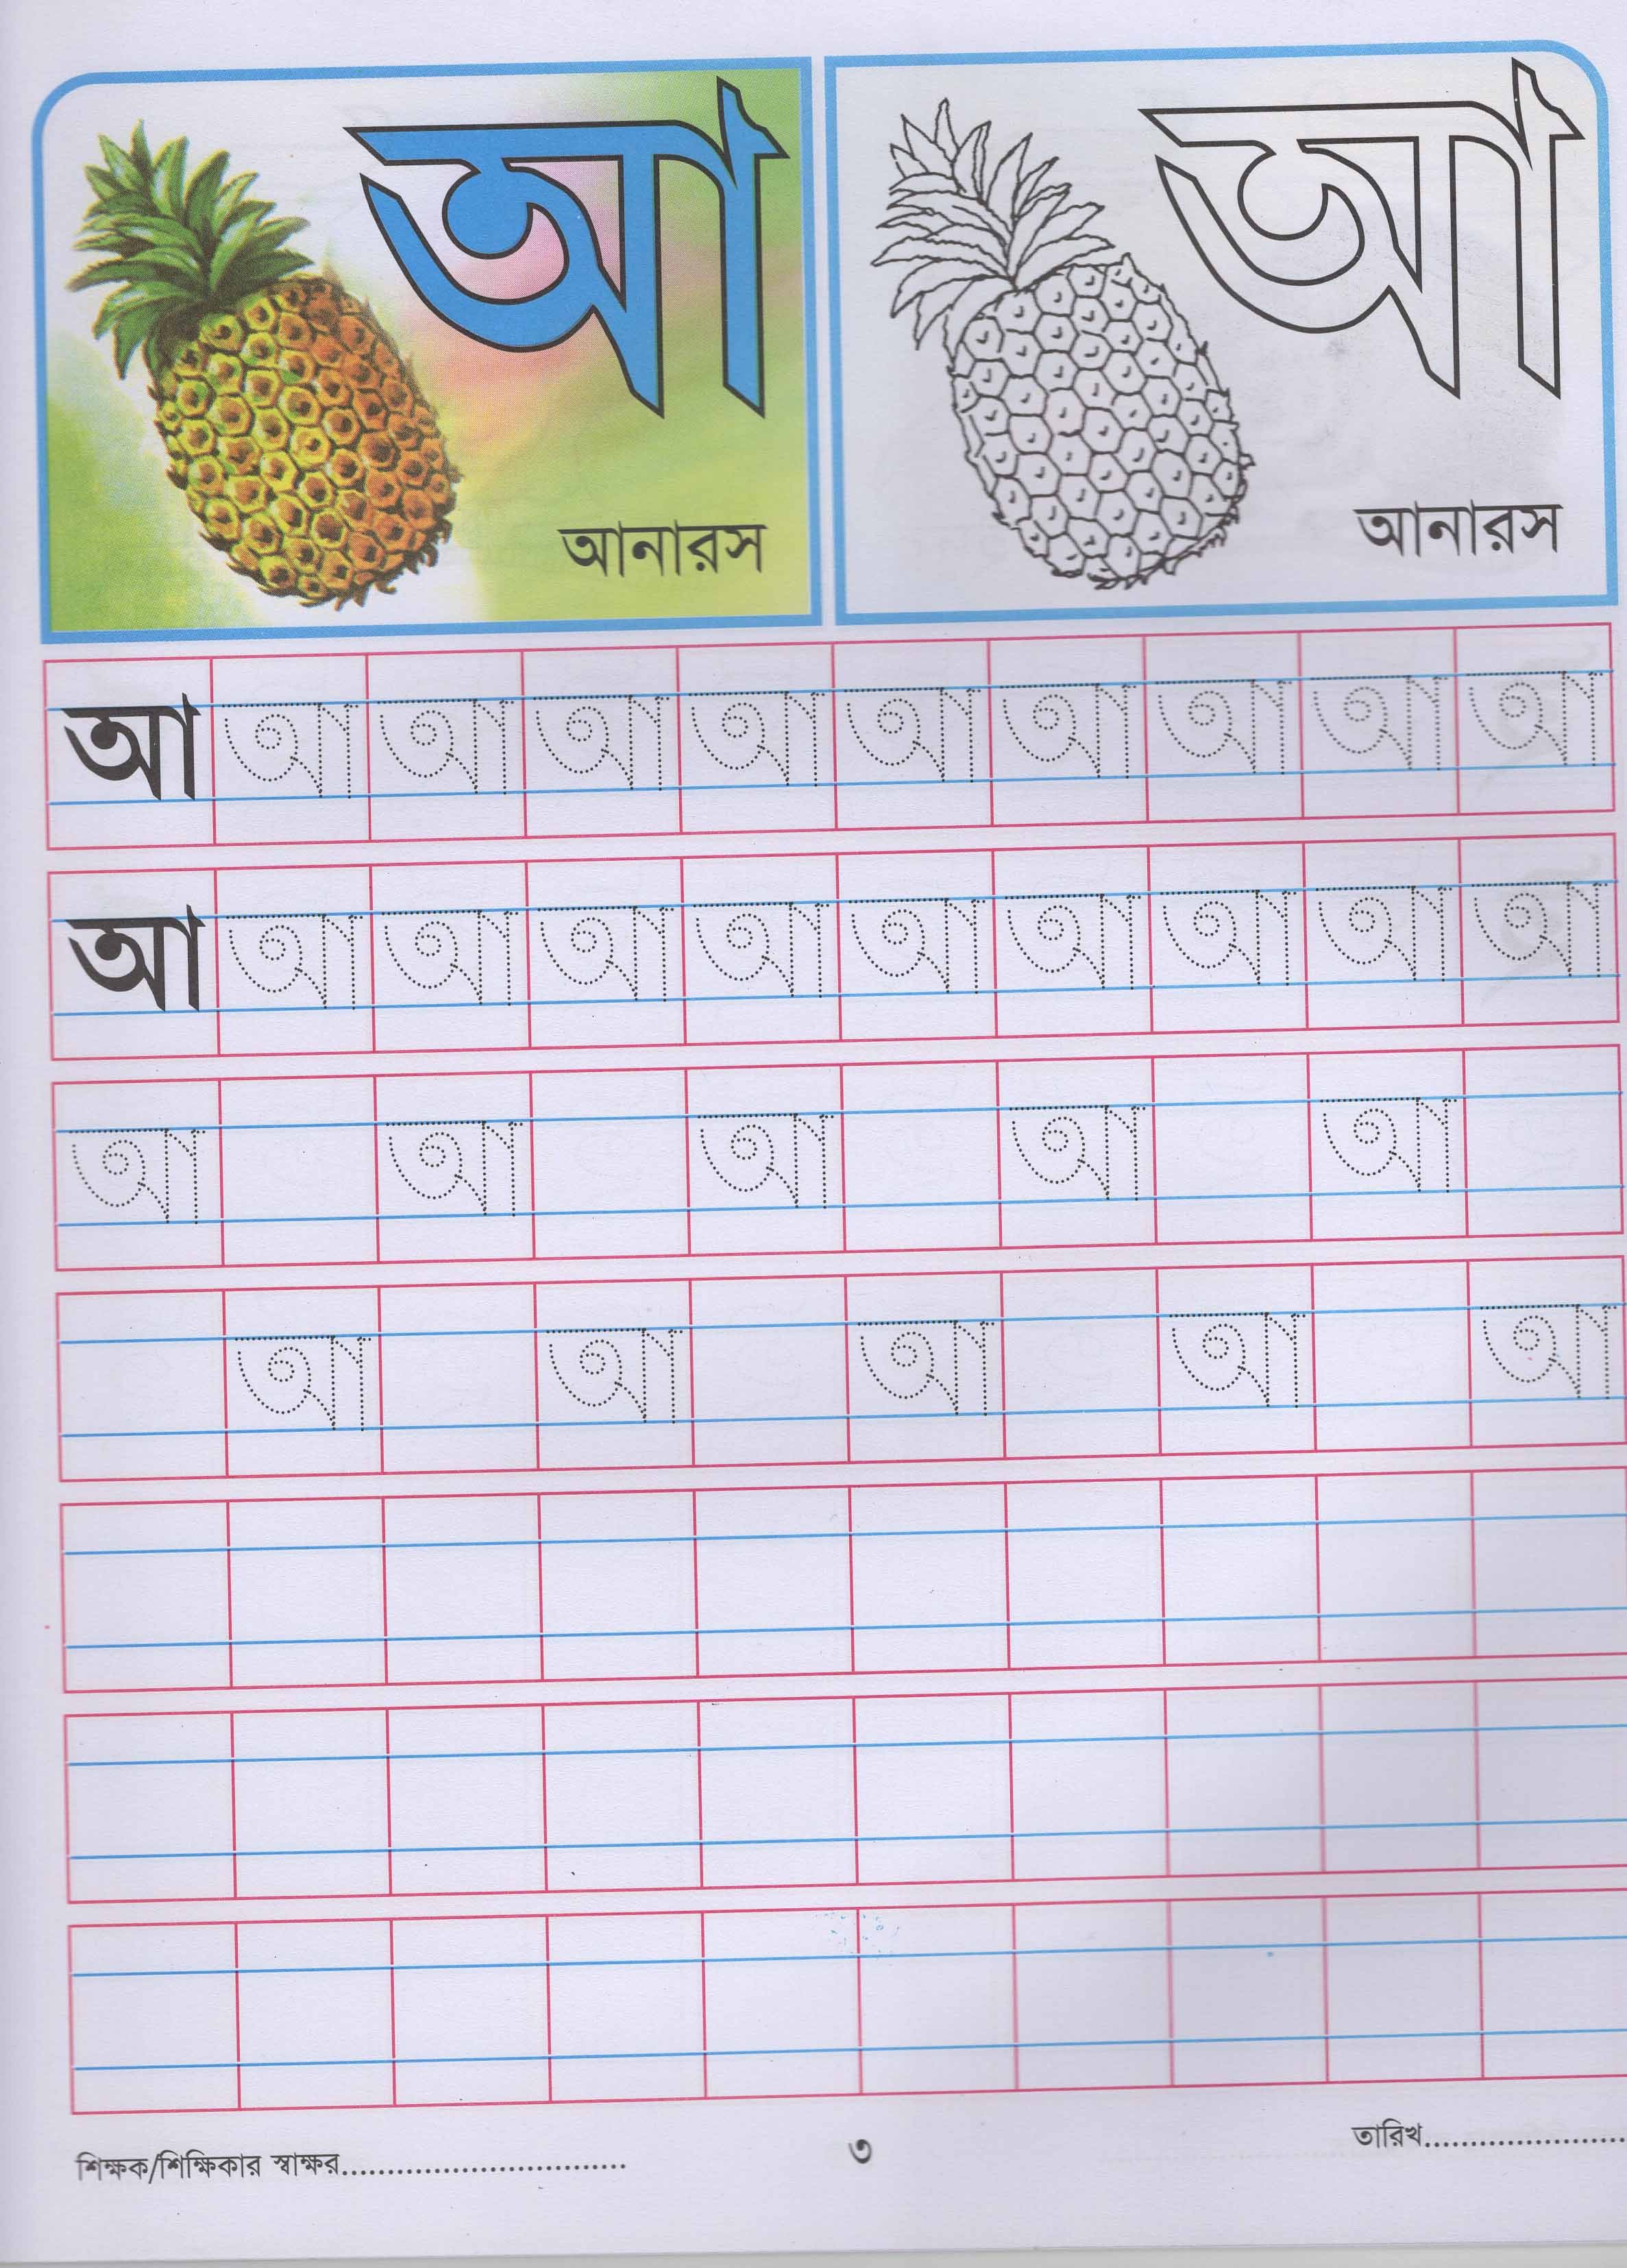 আ আ
আনারস আনারস
আ আ আ আ আ আ আ আ আ আ
আ আ আ আ আ আ আ আ আ আ
আ আ আ আ আ
আ আ আ আ আ
শিক্ষক/শিক্ষিকার স্বাক্ষর.............................. ৩ তারিখ......................